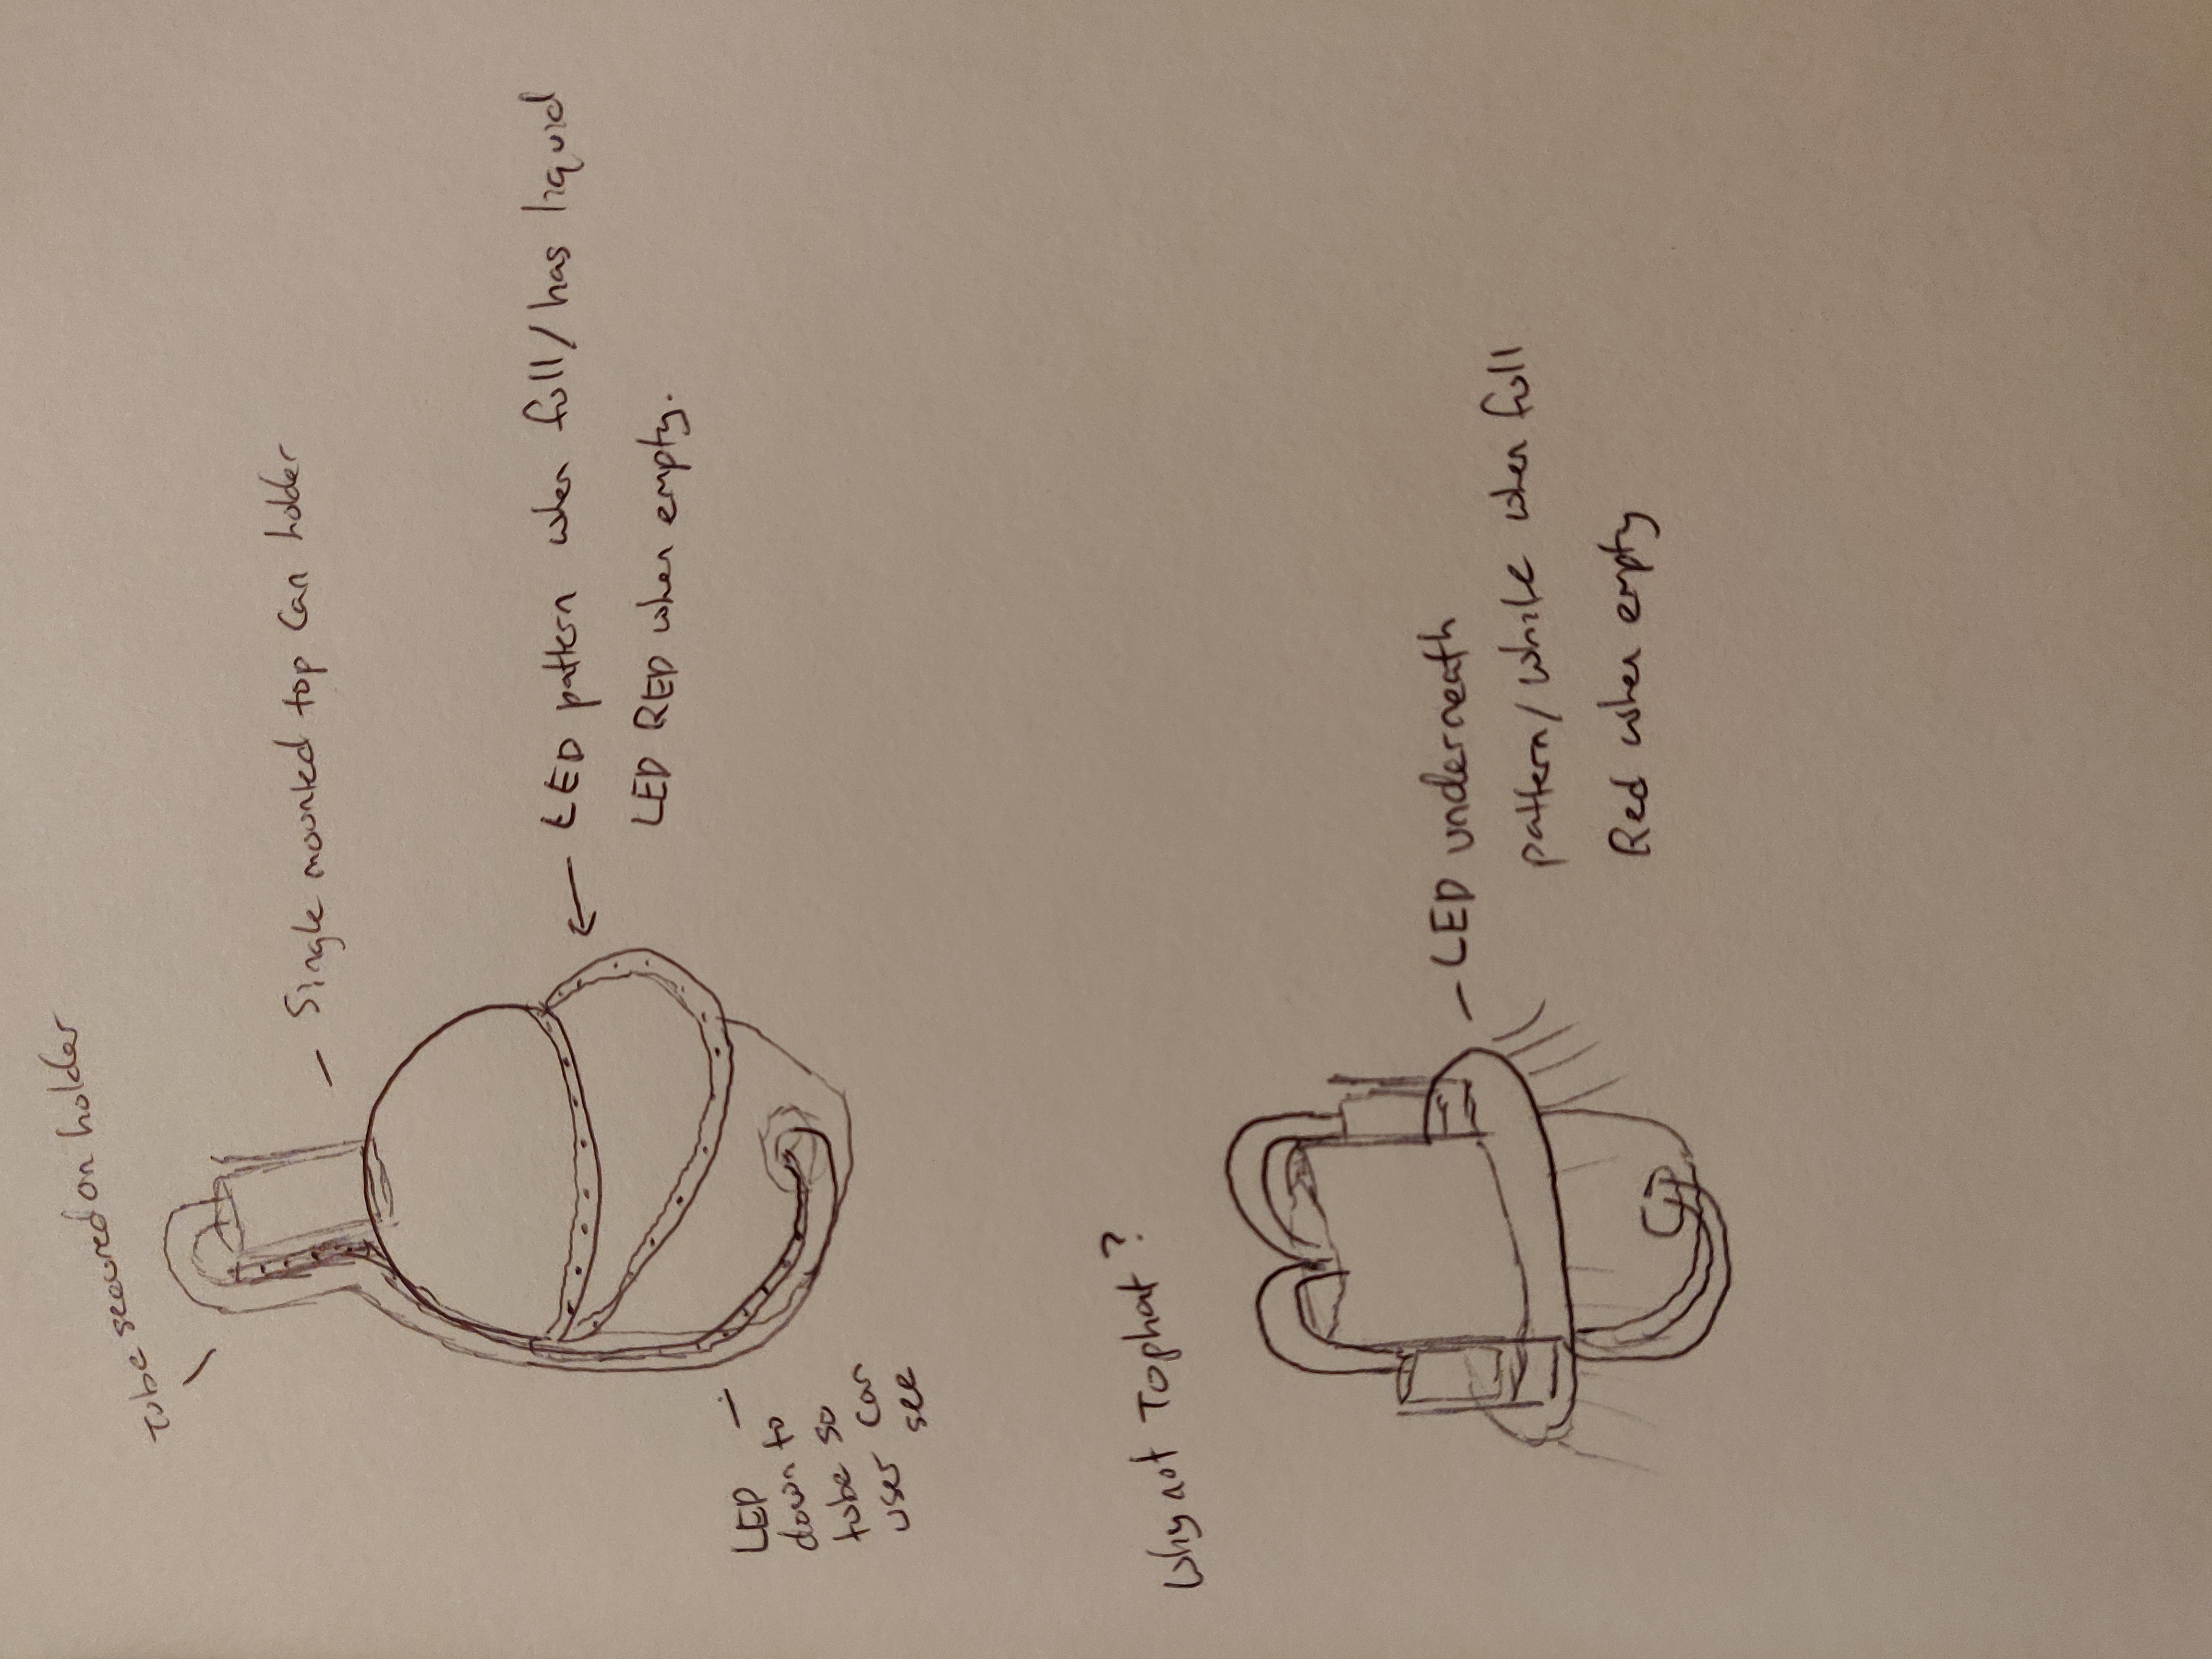 Tube secured on holder
Single mounted top Can holder
LED pattern when full/has liquid
LED RED when empty.
LED
down to
tube so
user can
see
Why not Tophat?
LED underneath
pattern/white when full
Red when empty